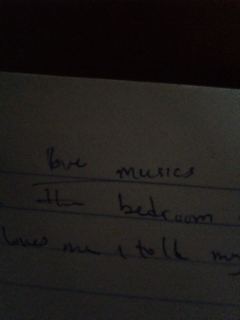 love musics
the bedroom
loves me, I talk my